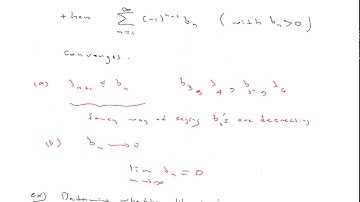 then ∑_{n=1}^{∞} (-1)^{n-1} b_n ( with b_n > 0 )
converges.
(a) b_{n+1} ≤ b_n b_3, b_4, b_5, b_6
fancy way of saying b_n's are decreasing
(b) b_n → 0
lim_{n→∞} b_n = 0
ex) Determine whether